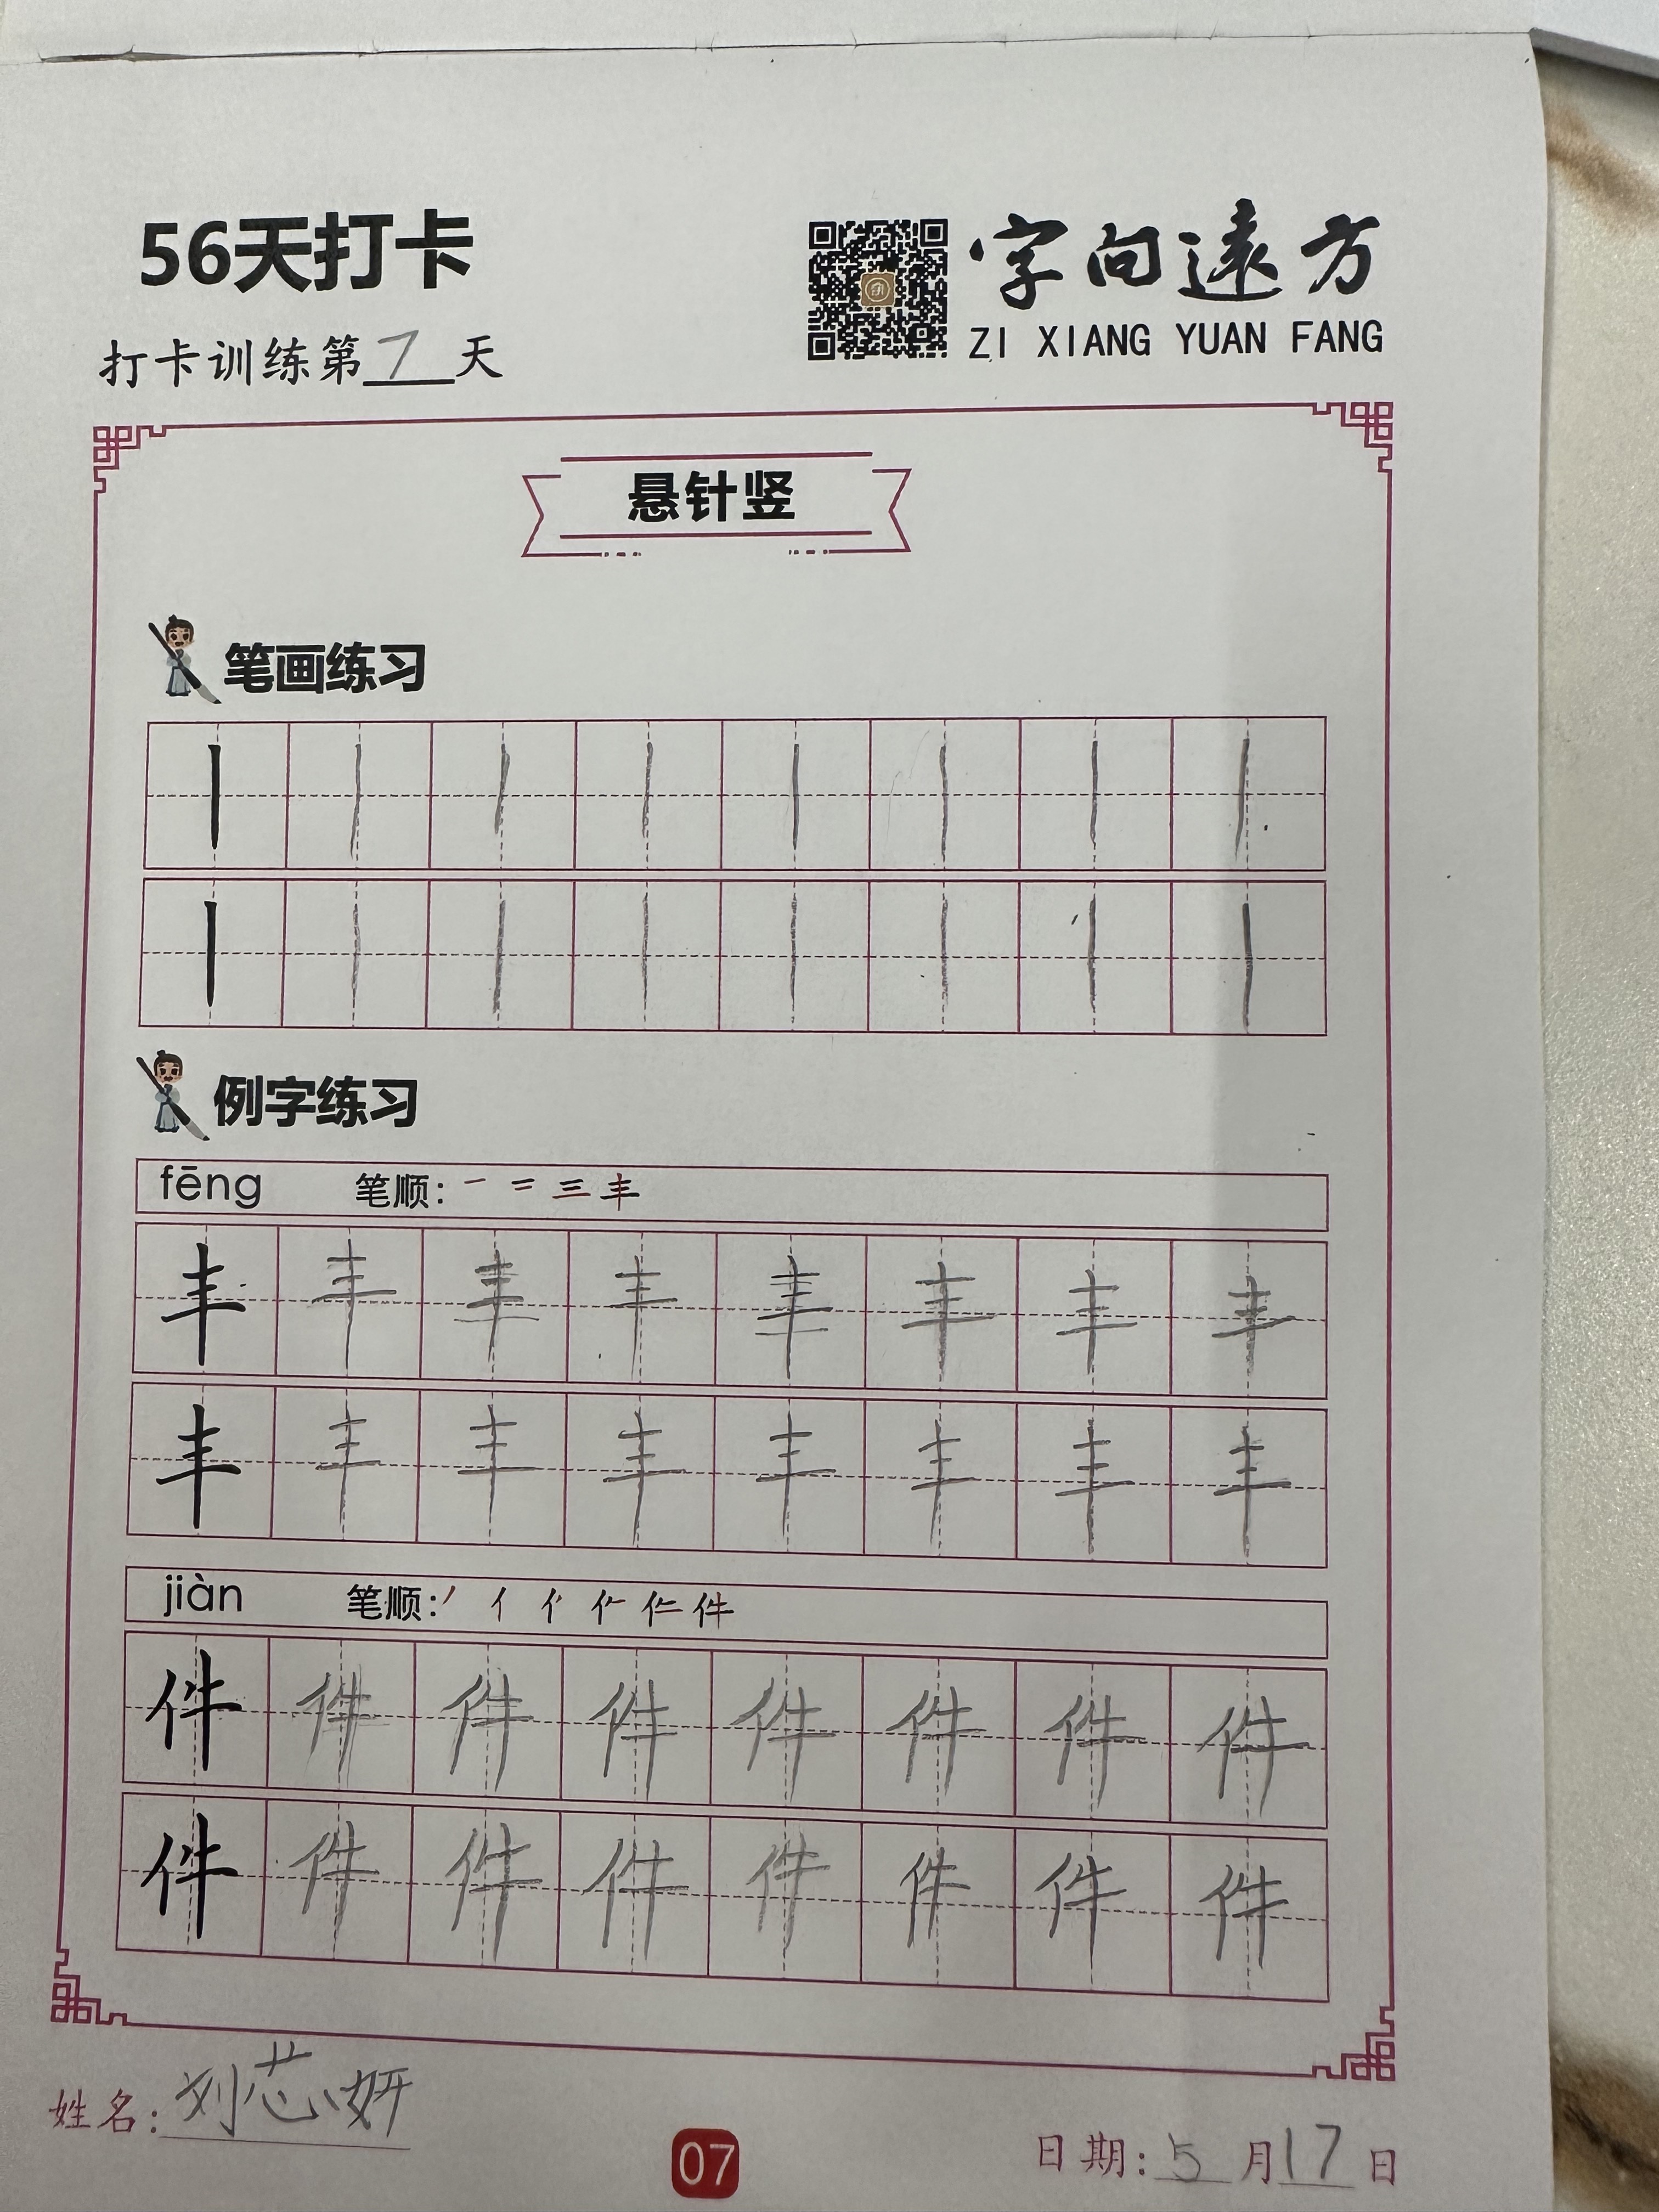 56天打卡
字向遠方
ZI XIANG YUAN FANG
打卡训练第7天
悬针竖
笔画练习
例字练习
fēng 笔顺: 一 二 三 丰
丰 丰 丰 丰 丰 丰 丰 丰
丰 丰 丰 丰 丰 丰 丰 丰
jiàn 笔顺: 丿 亻 件
件 件 件 件 件 件 件 件
件 件 件 件 件 件 件 件
姓名: 刘芯妍
07
日期: 5月17日